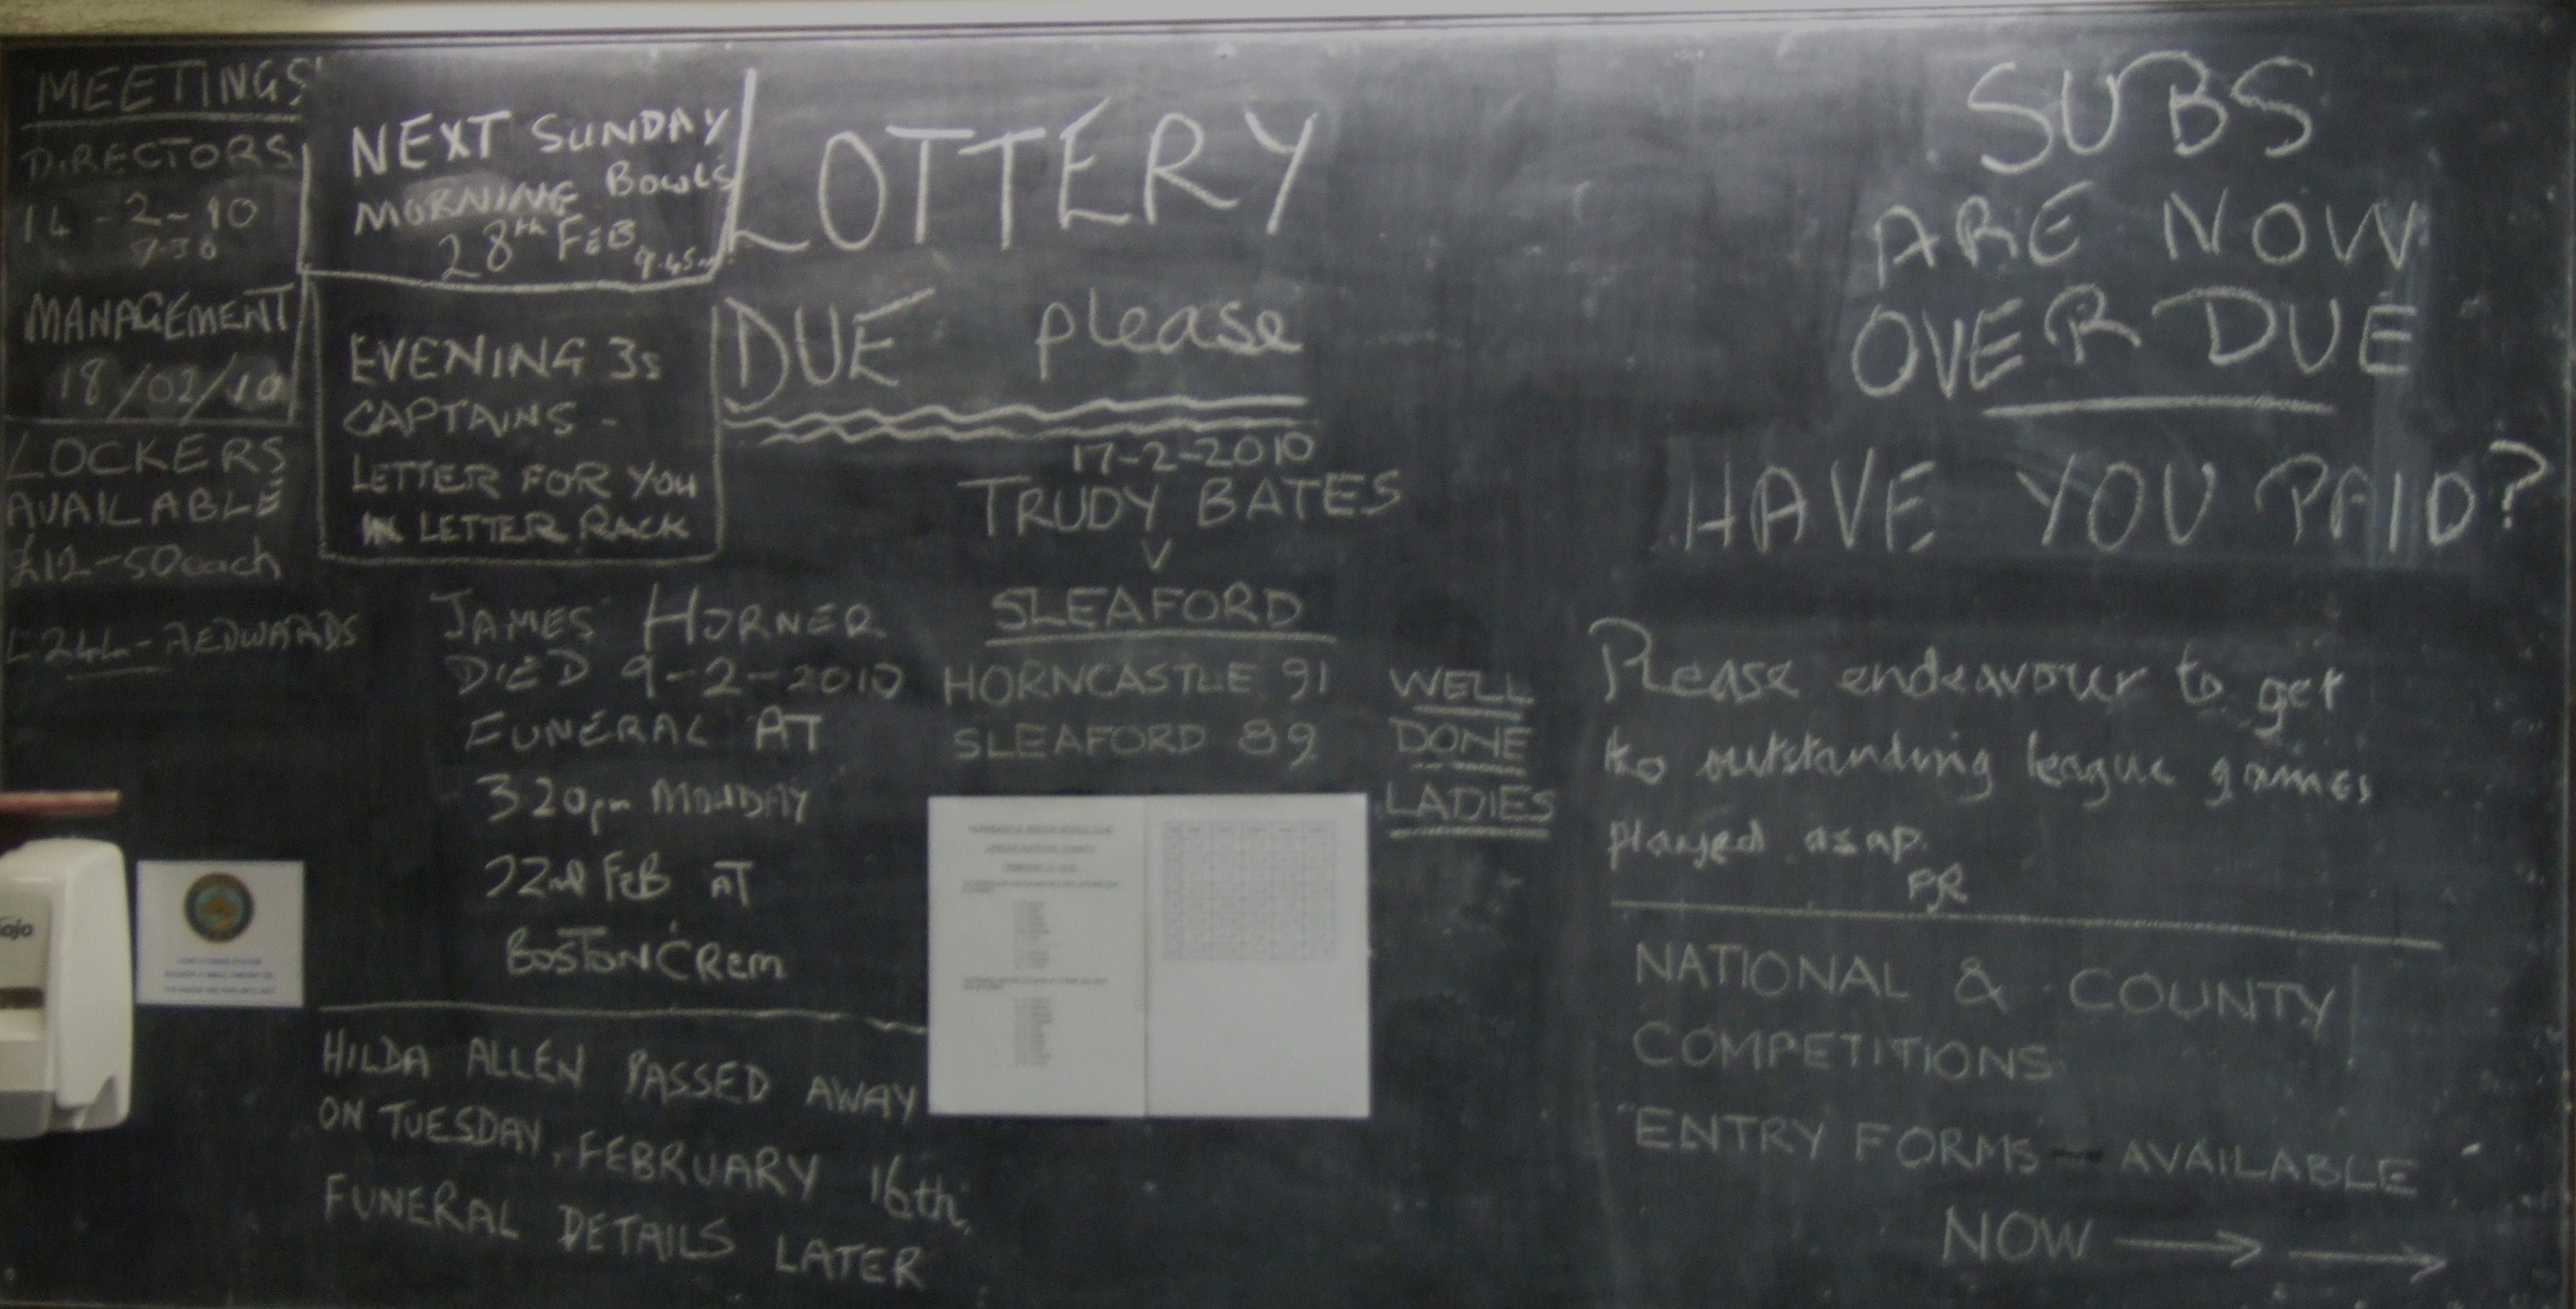 MEETINGS
DIRECTORS
14-2-10
7-30
MANAGEMENT
18/02/10
LOCKERS
AVAILABLE
£12-50 each
A EDWARDS
NEXT SUNDAY
MORNING BOWLS
28th FEB 9.45
EVENING 3s
CAPTAINS -
LETTER FOR YOU
IN LETTER RACK
JAMES HORNER
DIED 9-2-2010
FUNERAL AT
3 20pm MONDAY
22nd FEB AT
BOSTON CREM
HILDA ALLEN PASSED AWAY
ON TUESDAY, FEBRUARY 16th.
FUNERAL DETAILS LATER
LOTTERY
DUE please
17-2-2010
TRUDY BATES
V
SLEAFORD
HORNCASTLE 91
SLEAFORD 89
WELL
DONE
LADIES
SUBS
ARE NOW
OVERDUE
HAVE YOU PAID?
Please endeavour to get
to outstanding league games
played asap.
PR
NATIONAL & COUNTY
COMPETITIONS
ENTRY FORMS - AVAILABLE
NOW → →